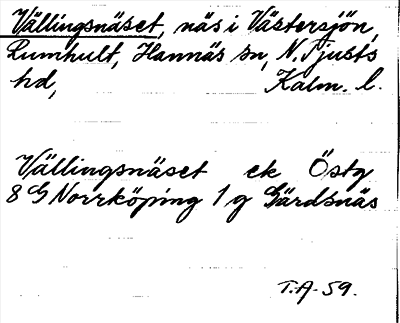 Vällingsnäset, näs i Västersjön,
Rumhult, Hannäs sn, N. Tjusts
hd, Kalm. l.
Vällingsnäset ek Östg
8 G Norrköping 1 g Gärdsnäs
T.A. 59.